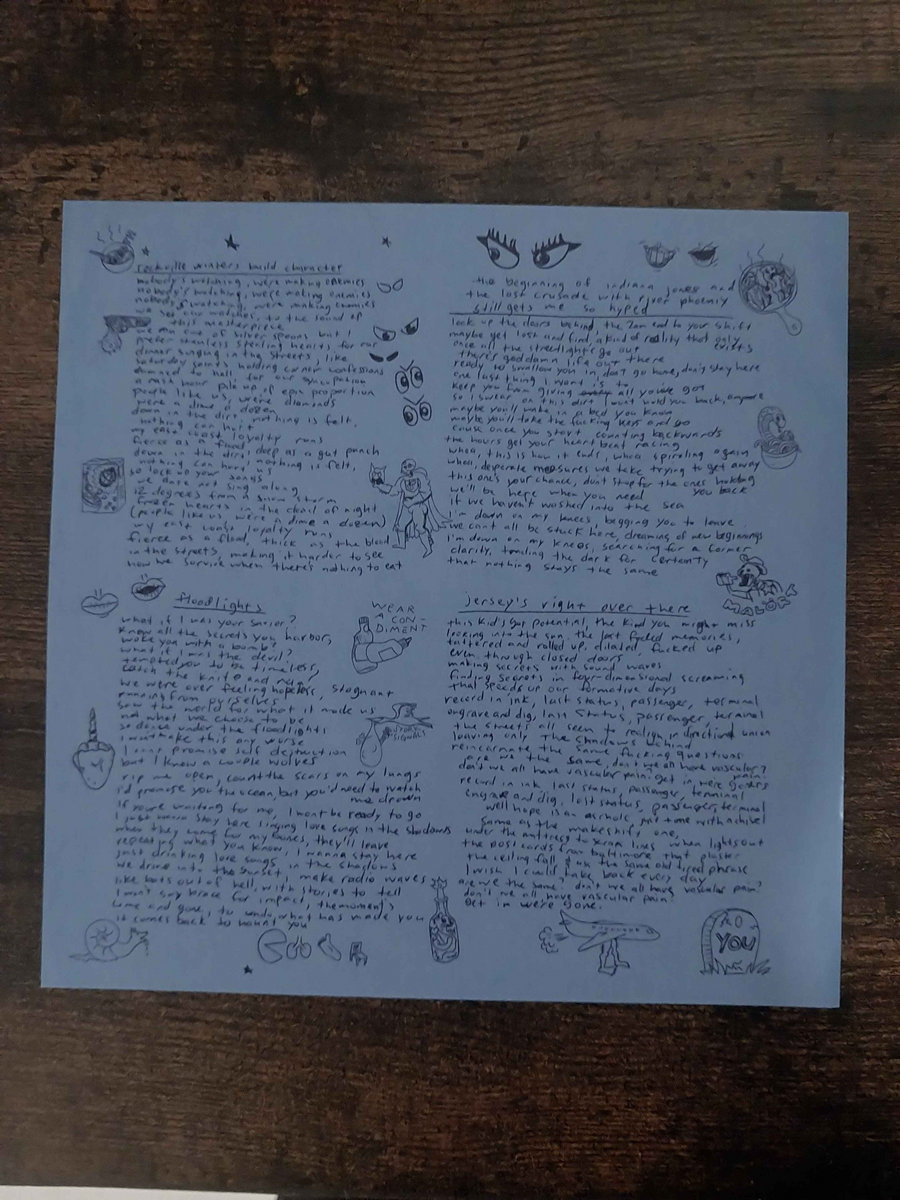 rockville winters build character
nobody's watching, we're making enemies
nobody's watching, we're making enemies
nobody's watching, we're making enemies
we set our watches, to the sound of
this masterpiece
silver spoons but I
prefer stainless steeling hearts, for our
dinner singing in the streets, like
saturday saints holding corner confessions
damned to hell, for our syncopation
a rush hour pile up of epic proportion
people like us, we're diamonds
we're a dime a dozen
down in the dirt, nothing is felt,
nothing can hurt
my east coast loyalty runs
fierce as a flood
down in the dirt, deep as a gut punch
nothing can hurt us, nothing is felt,
so lock up your songs
we dare not sing along
12 degrees from a snow storm
frozen hearts in the of night
(people like us, we're a dime a dozen)
my east coast loyalty runs
fierce as a flood, thick as the blood
in the streets, making it harder to see
how we survive when there's nothing to eat
the beginning of indiana jones and
the last crusade with river phoenix
still gets me so hyped
lock up the doors behind, the 2am end to your shift
maybe get lost and find a kind of reality that only
exists
once all the streetlights go out
there's goddamn life out there
ready to swallow you in, don't go home, don't stay here
one last thing I want is to
keep you from giving all you've got
so I swear on this dirt I won't hold you back, anymore
maybe you'll wake in a bed you know
maybe you'll take the fucking keys and go
cause once you start counting backwards
the hours get your heart beat racing
whoa, this is how it ends, whoa spiraling again
whoa, desperate measures we take trying to get away
this one's your chance, don't stop for the ones holding
you back
we'll be here when you need
if we haven't washed into the sea
I'm down on my knees begging you to leave
we cant all be stuck here, dreaming of new beginnings
I'm down on my knees, searching for a former
clarity, tending the dark for certainty
that nothing stays the same
MALÖRT
floodlights
what if I was your savior?
knew all the secrets you harbor,
woke you with a bomb?
what if I was the devil?
tempted you to be timeless,
catch the knife and run,
we were over feeling hopeless, stagnant
running from ourselves
saw the world for what it made us
not what we choose to be
so down under the floodlights
I won't make this any worse
I can't promise self destruction
but I know a couple wolves
rip me open, count the scars on my lungs
I'd promise you the ocean, but you'd need to watch
me drown
if you're waiting for me, I wont be ready to go
I just wanna stay here singing love songs in the shadows
when they come for my bones, they'll leave
repeating what you know, I wanna stay here
just drinking love songs, in the shadows
we drove into the sunset, I make radio waves
like bats out of hell, with stories to tell
I won't say brace for impact, the moment's
come and gone, to undo, what has made you
it comes back to haunt you
WEAR
A CON-
DIMENT
STORK
SIGNALS
jersey's right over there
this kid's got potential, the kind you might miss
looking into the sun. the last fucked memories,
tattered and rolled up, dilated, fucked up
even, through closed doors
making secrets with sound waves
finding secrets in four-dimensional screaming
that speeds up our formative days
record in ink, last status, passenger, terminal
engrave and dig, last status, passenger, terminal
the streets all seem to realign, in directional unison
leaving only the shadows behind
reincarnate the same fucking questions
are we the same, don't we all have vascular?
don't we all have vascular pain? get in we're goners
pain.
record in ink last status, passenger, terminal
engrave and dig, last status, passenger, terminal
well hope is an airhole, put some with a chisel
same as the makeshift one,
under the mattress to scrawl lines when lights out
the postcards from baltimore that plaster
the ceiling fall the same old tired phrase
I wish I could take back every day
are we the same? don't we all have vascular pain?
don't we all have vascular pain?
get in we're gone.
YOU